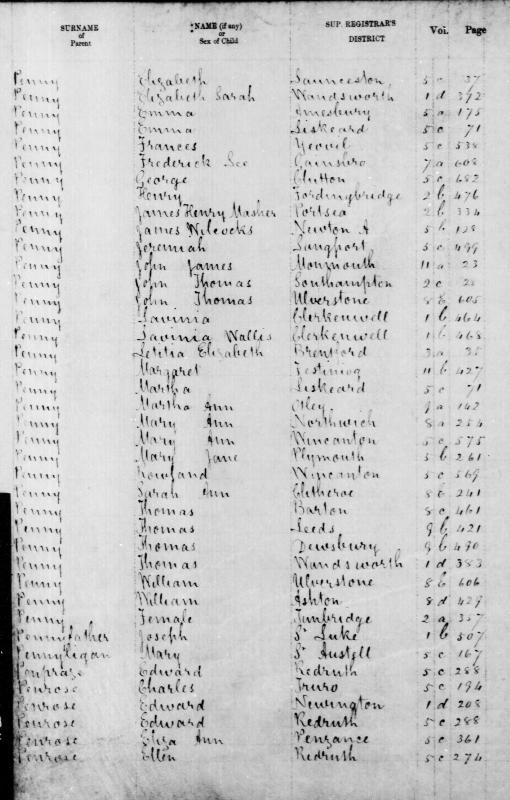 SURNAME of Parent *NAME (if any) or Sex of Child SUP. REGISTRAR'S DISTRICT Vol. Page
Penny Elizabeth Launceston 5 c 37
Penny Elizabeth Sarah Wandsworth 1 d 392
Penny Emma Amesbury 5 a 175
Penny Emma Liskeard 5 c 71
Penny Frances Yeovil 5 c 538
Penny Frederick Lee Gainsbro 7 a 608
Penny George Clutton 5 c 682
Penny Henry Fordingbridge 2 b 476
Penny James Henry Masher Portsea 2 b 334
Penny James Wilcocks Newton A 5 b 128
Penny Jeremiah Langport 5 c 499
Penny John James Monmouth 11 a 23
Penny John Thomas Southampton 2 c
Penny John Thomas Ulverstone 8 e 605
Penny Lavinia Clerkenwell 1 b 464
Penny Lavinia Wallis Clerkenwell 1 b 468
Penny Letitia Elizabeth Brentford 3 a 35
Penny Margaret Festiniog 11 b 427
Penny Martha Liskeard 5 c 71
Penny Martha Ann Otley 9 a 142
Penny Mary Ann Northwich 8 a 254
Penny Mary Ann Wincanton 5 c 575
Penny Mary Jane Plymouth 5 b 261
Penny Rowland Wincanton 5 c 569
Penny Sarah Ann Clitheroe 8 e 241
Penny Thomas Barton 8 c 461
Penny Thomas Leeds 9 b 421
Penny Thomas Dewsbury 9 b 490
Penny Thomas Wandsworth 1 d 383
Penny William Ulverstone 8 e 606
Penny William Ashton 8 d 429
Penny Female Tunbridge 2 a 357
Pennyfather Joseph St Luke 1 b 507
Pennyligan Mary St Austell 5 c 167
Penpraze Edward Redruth 5 c 288
Penrose Charles Truro 5 c 194
Penrose Edward Newington 1 d 208
Penrose Edward Redruth 5 c 288
Penrose Eliza Ann Penzance 5 c 361
Penrose Ellen Redruth 5 c 274